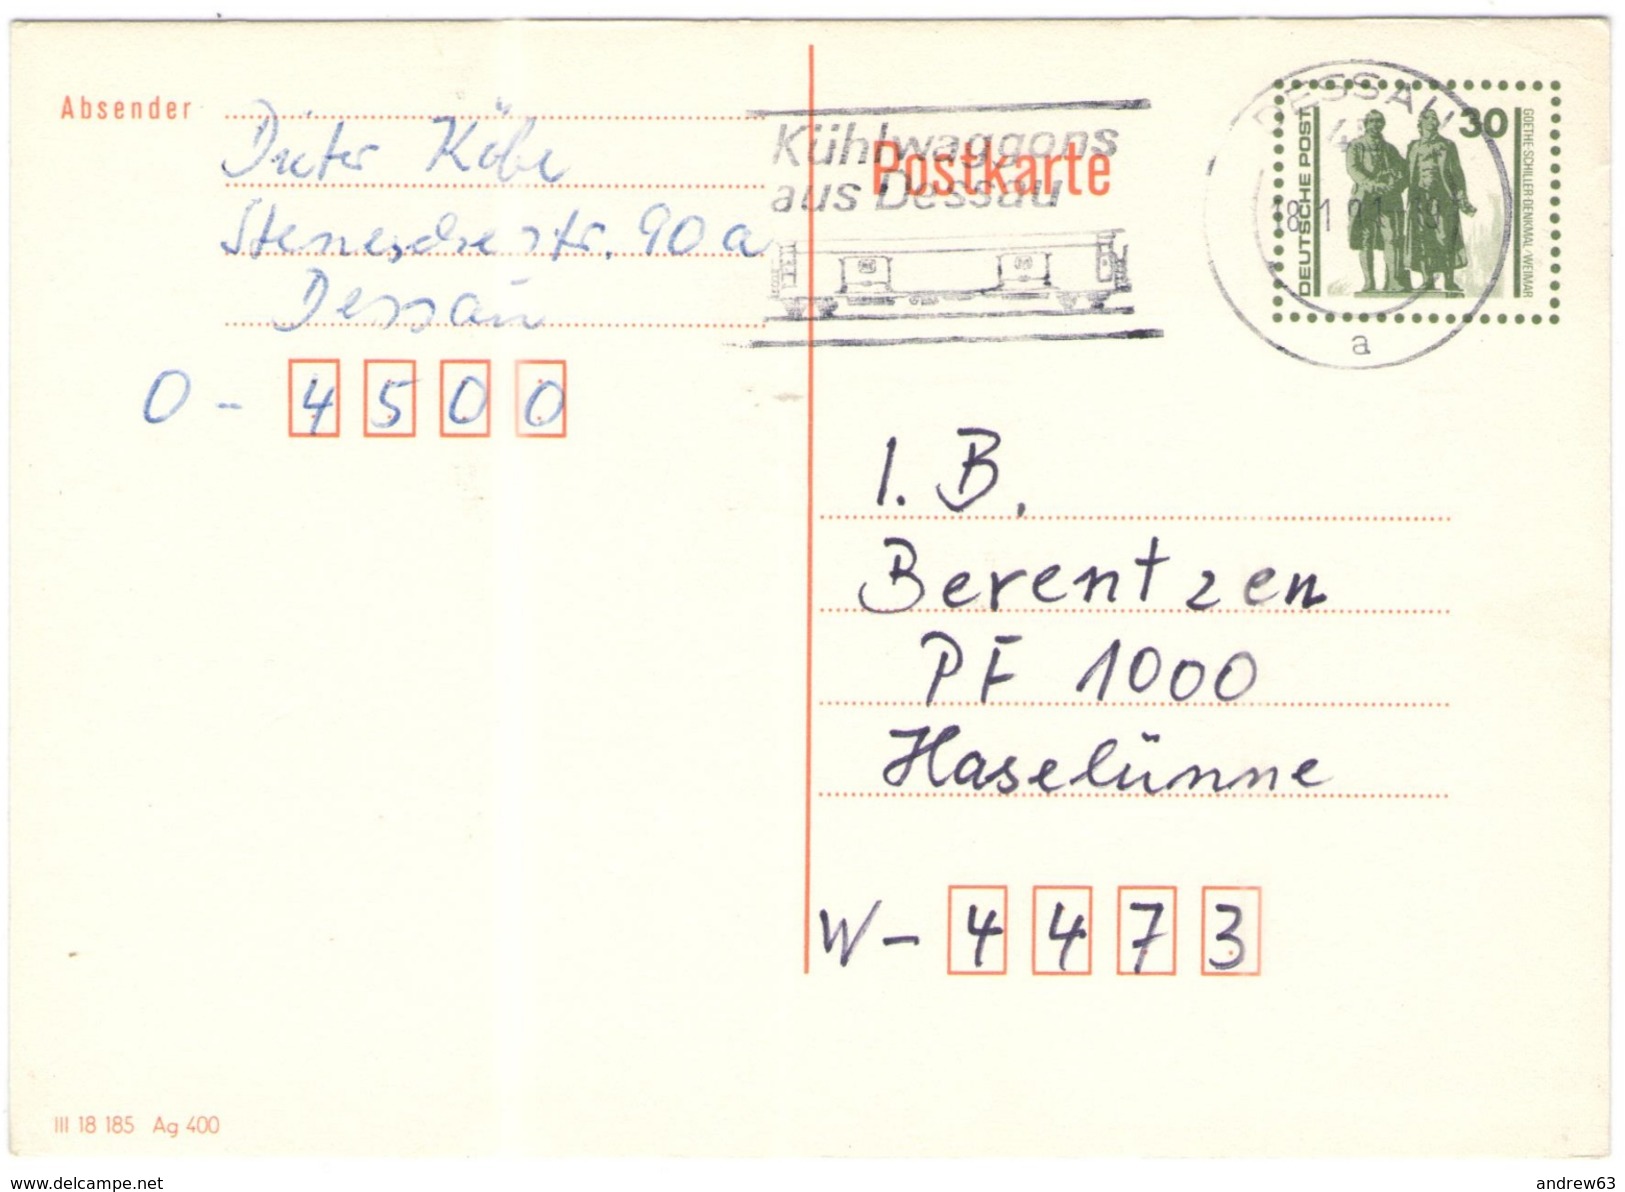 Absender
Dieter
Dessau
O - 4500
Kühlwaggons
aus Dessau
Postkarte
DESSAU
45
a
30
DEUTSCHE POST
GOETHE-SCHILLER-DENKMAL/WEIMAR
I. B.
Berentzen
PF 1000
Haselünne
W - 4473
III 18 185 Ag 400
www.delcampe.net
andrew63